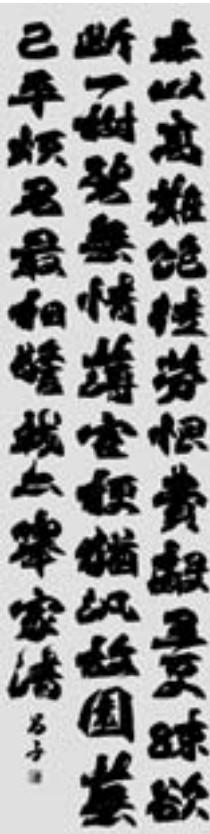 本以高難飽徒勞恨費聲五更踈欲
断一樹碧無情薄宦梗猶汎故園蕪
已平煩君最相警我亦舉家清